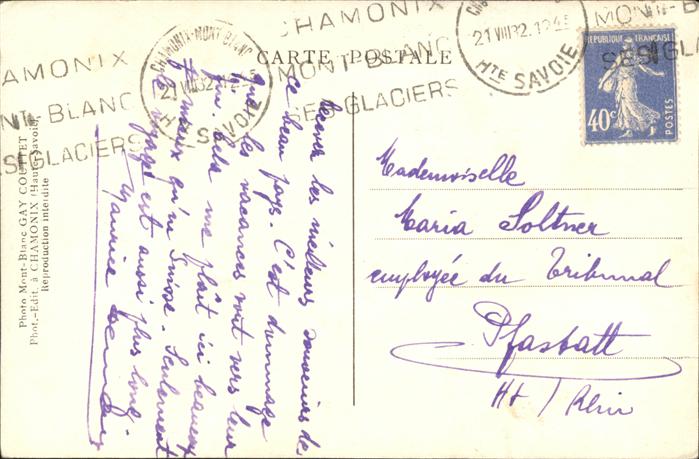 CHAMONIX
MONT-BLANC
SES GLACIERS
CHAMONIX-MONT-BLANC
21 VIII 32 1215
Hte SAVOIE
CHAMONIX
MONT-BLANC
SES GLACIERS
21 VIII 32 1945
Hte SAVOIE
MONT-B
SES GL
CARTE POSTALE
REPUBLIQUE FRANÇAISE
40c
POSTES
Photo Mont-Blanc GAY COUTTET
Phot.-Edit. à CHAMONIX (Haute-Savoie)
Reproduction interdite
Recevez les meilleurs souvenirs de
ce beau pays. C'est dommage
que les vacances vont vers leur
fin. Cela me plaît ici beaucoup
mieux qu'en Suisse. Seulement
le est aussi plus long.
Maurice
Mademoiselle
Maria Soltner
employée du Tribunal
Pfastatt
Ht / Rhin